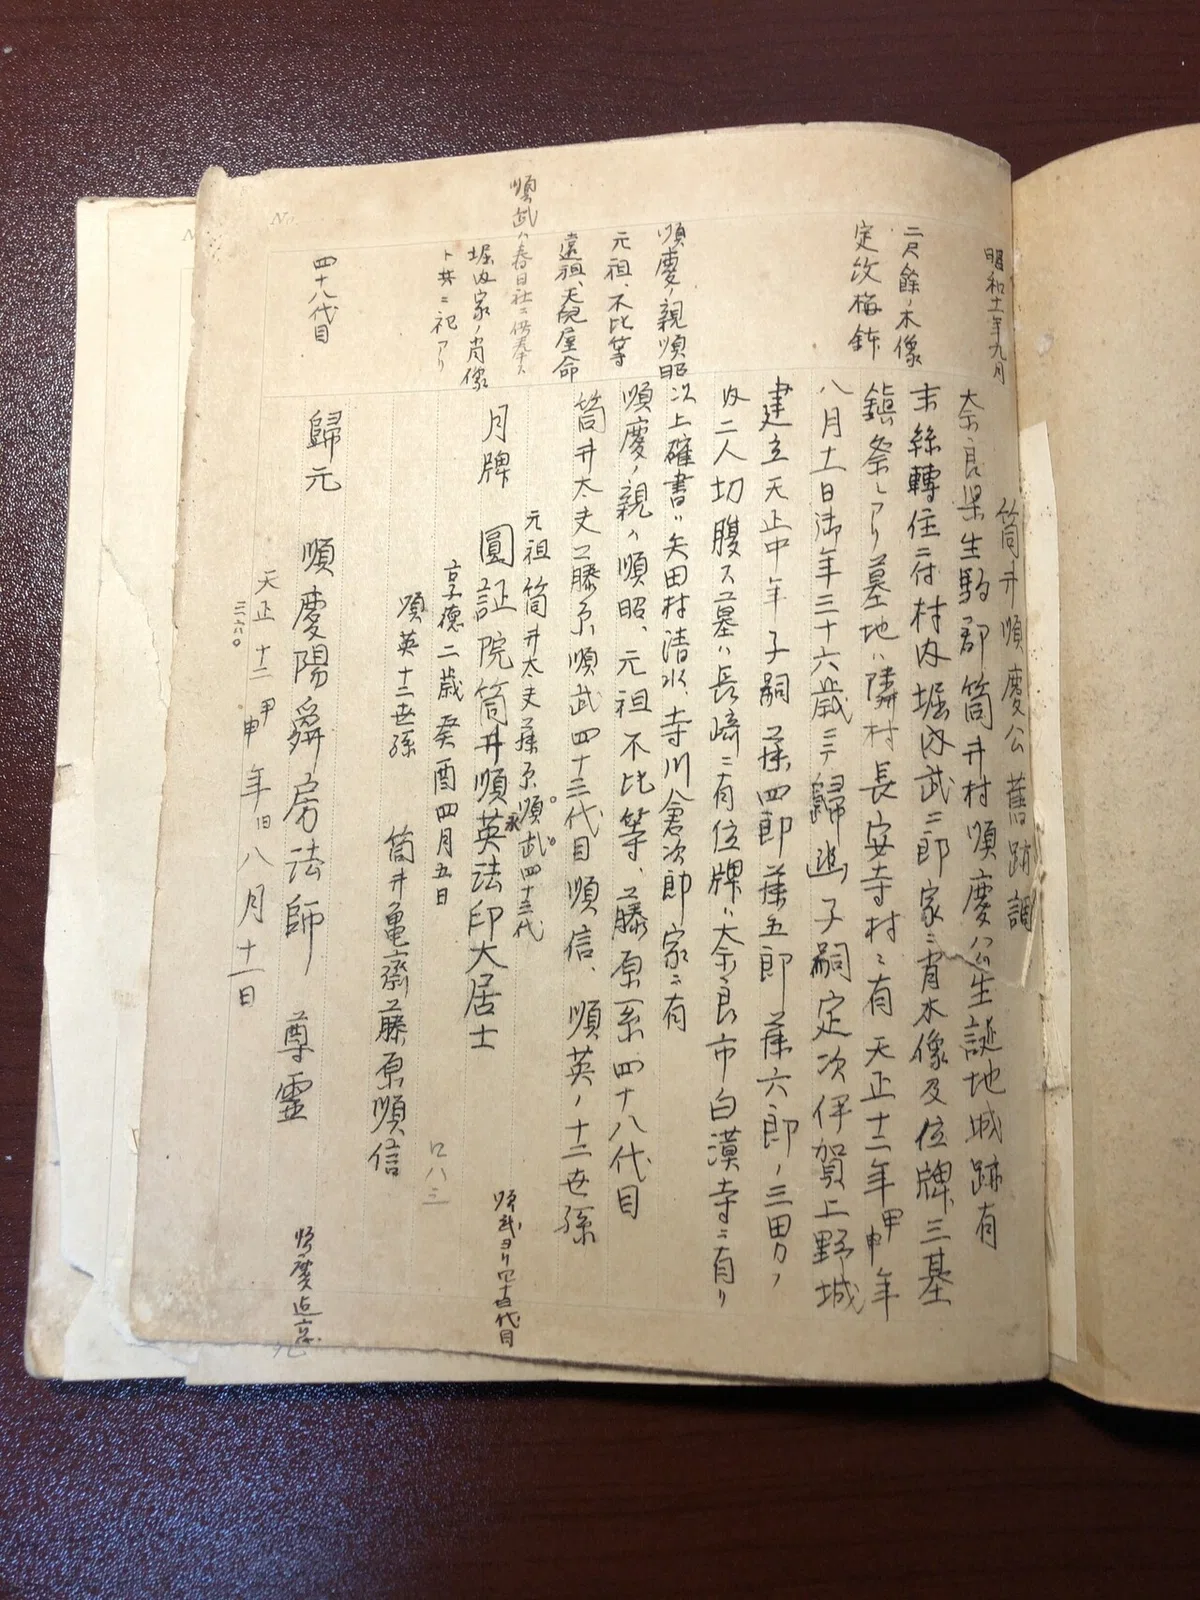 昭和十一年九月
筒井順慶公舊跡調
奈良県生駒郡筒井村順慶公生誕地城跡有
二尺餘ノ木像
末孫轉住二付村内堀内武二郎家ニ肖木像及位牌三基
定紋梅鉢
鎮祭シアリ墓地ハ隣村長安寺村ニ有天正十二年甲申年
八月十一日御年三十六歳ニテ歸幽子嗣定次伊賀上野城
建立天正中年子嗣藤四郎藤五郎藤六郎ノ三男ノ
内二人切腹ス墓ハ長崎ニ有位牌ハ奈良市白漠寺ニ有リ
順慶ノ親順昭
次上確書ハ矢田村清水、寺川倉次郎家ニ有
元祖、不比等
順慶ノ親ハ順昭、元祖不比等、藤原系四十八代目
遠祖、天児屋命
筒井太夫藤原順武四十三代目順信、順英ノ十二世孫
順武ハ春日社ニ供奉ス
元祖筒井太夫藤原順武四十三代
順武ヨリ四十五代目
堀内家ノ肖像
ト共ニ祀アリ
月牌 圓証院筒井順永英法印大居士
享徳二歳癸酉四月五日
順英十二世孫 筒井亀齋藤原順信
四十八代目
歸元 順慶陽舜房法師 尊霊
天正十二甲申年旧八月十一日
三六。